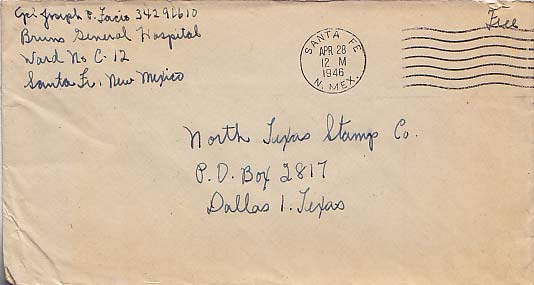 Cpl Joseph P. Facio 34291610
Bruns General Hospital
Ward No C-12
Santa Fe, New Mexico
Free
SANTA FE
APR 28
12 M
1946
N. MEX.
North Texas Stamp Co.
P.O. Box 2817
Dallas 1. Texas